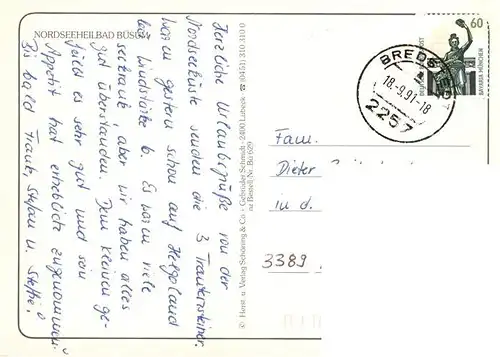 NORDSEEHEILBAD BÜSUM
Herzliche Urlaubsgrüße von der
Nordseeküste senden die 3 Trautensteiner.
Waren gestern schon auf Helgoland
bei Windstärke 6. Es waren viele
seekrank, aber wir haben alles
gut überstanden. Dem Kleinen ge-
fällt es sehr gut und sein
Appetit hat erheblich zugenommen.
Bis bald Frank, Stefan u. Steffi!
© Herst. u. Verlag Schöning & Co. + Gebrüder Schmidt · 2400 Lübeck · ☎ (0451) 310 310 0
Bestell-Nr.
60
DEUTSCHE
BAVARIA MÜNCHEN
BREDS
18.-9.91-18
2257
Fam.
Dieter
in d.
3389